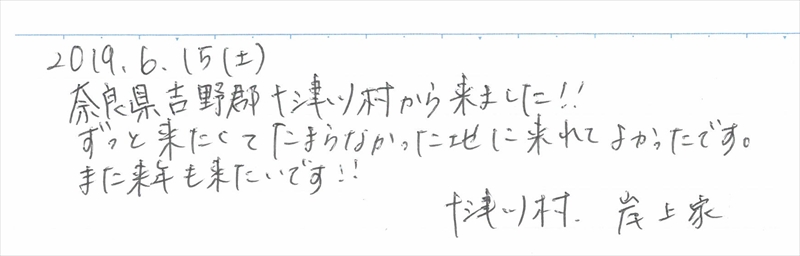 2019.6.15(土)
奈良県吉野郡十津川村から来ました!!
ずっと来たくてたまらなかった地に来れてよかったです。
また来年も来たいです!!
十津川村. 岸上家